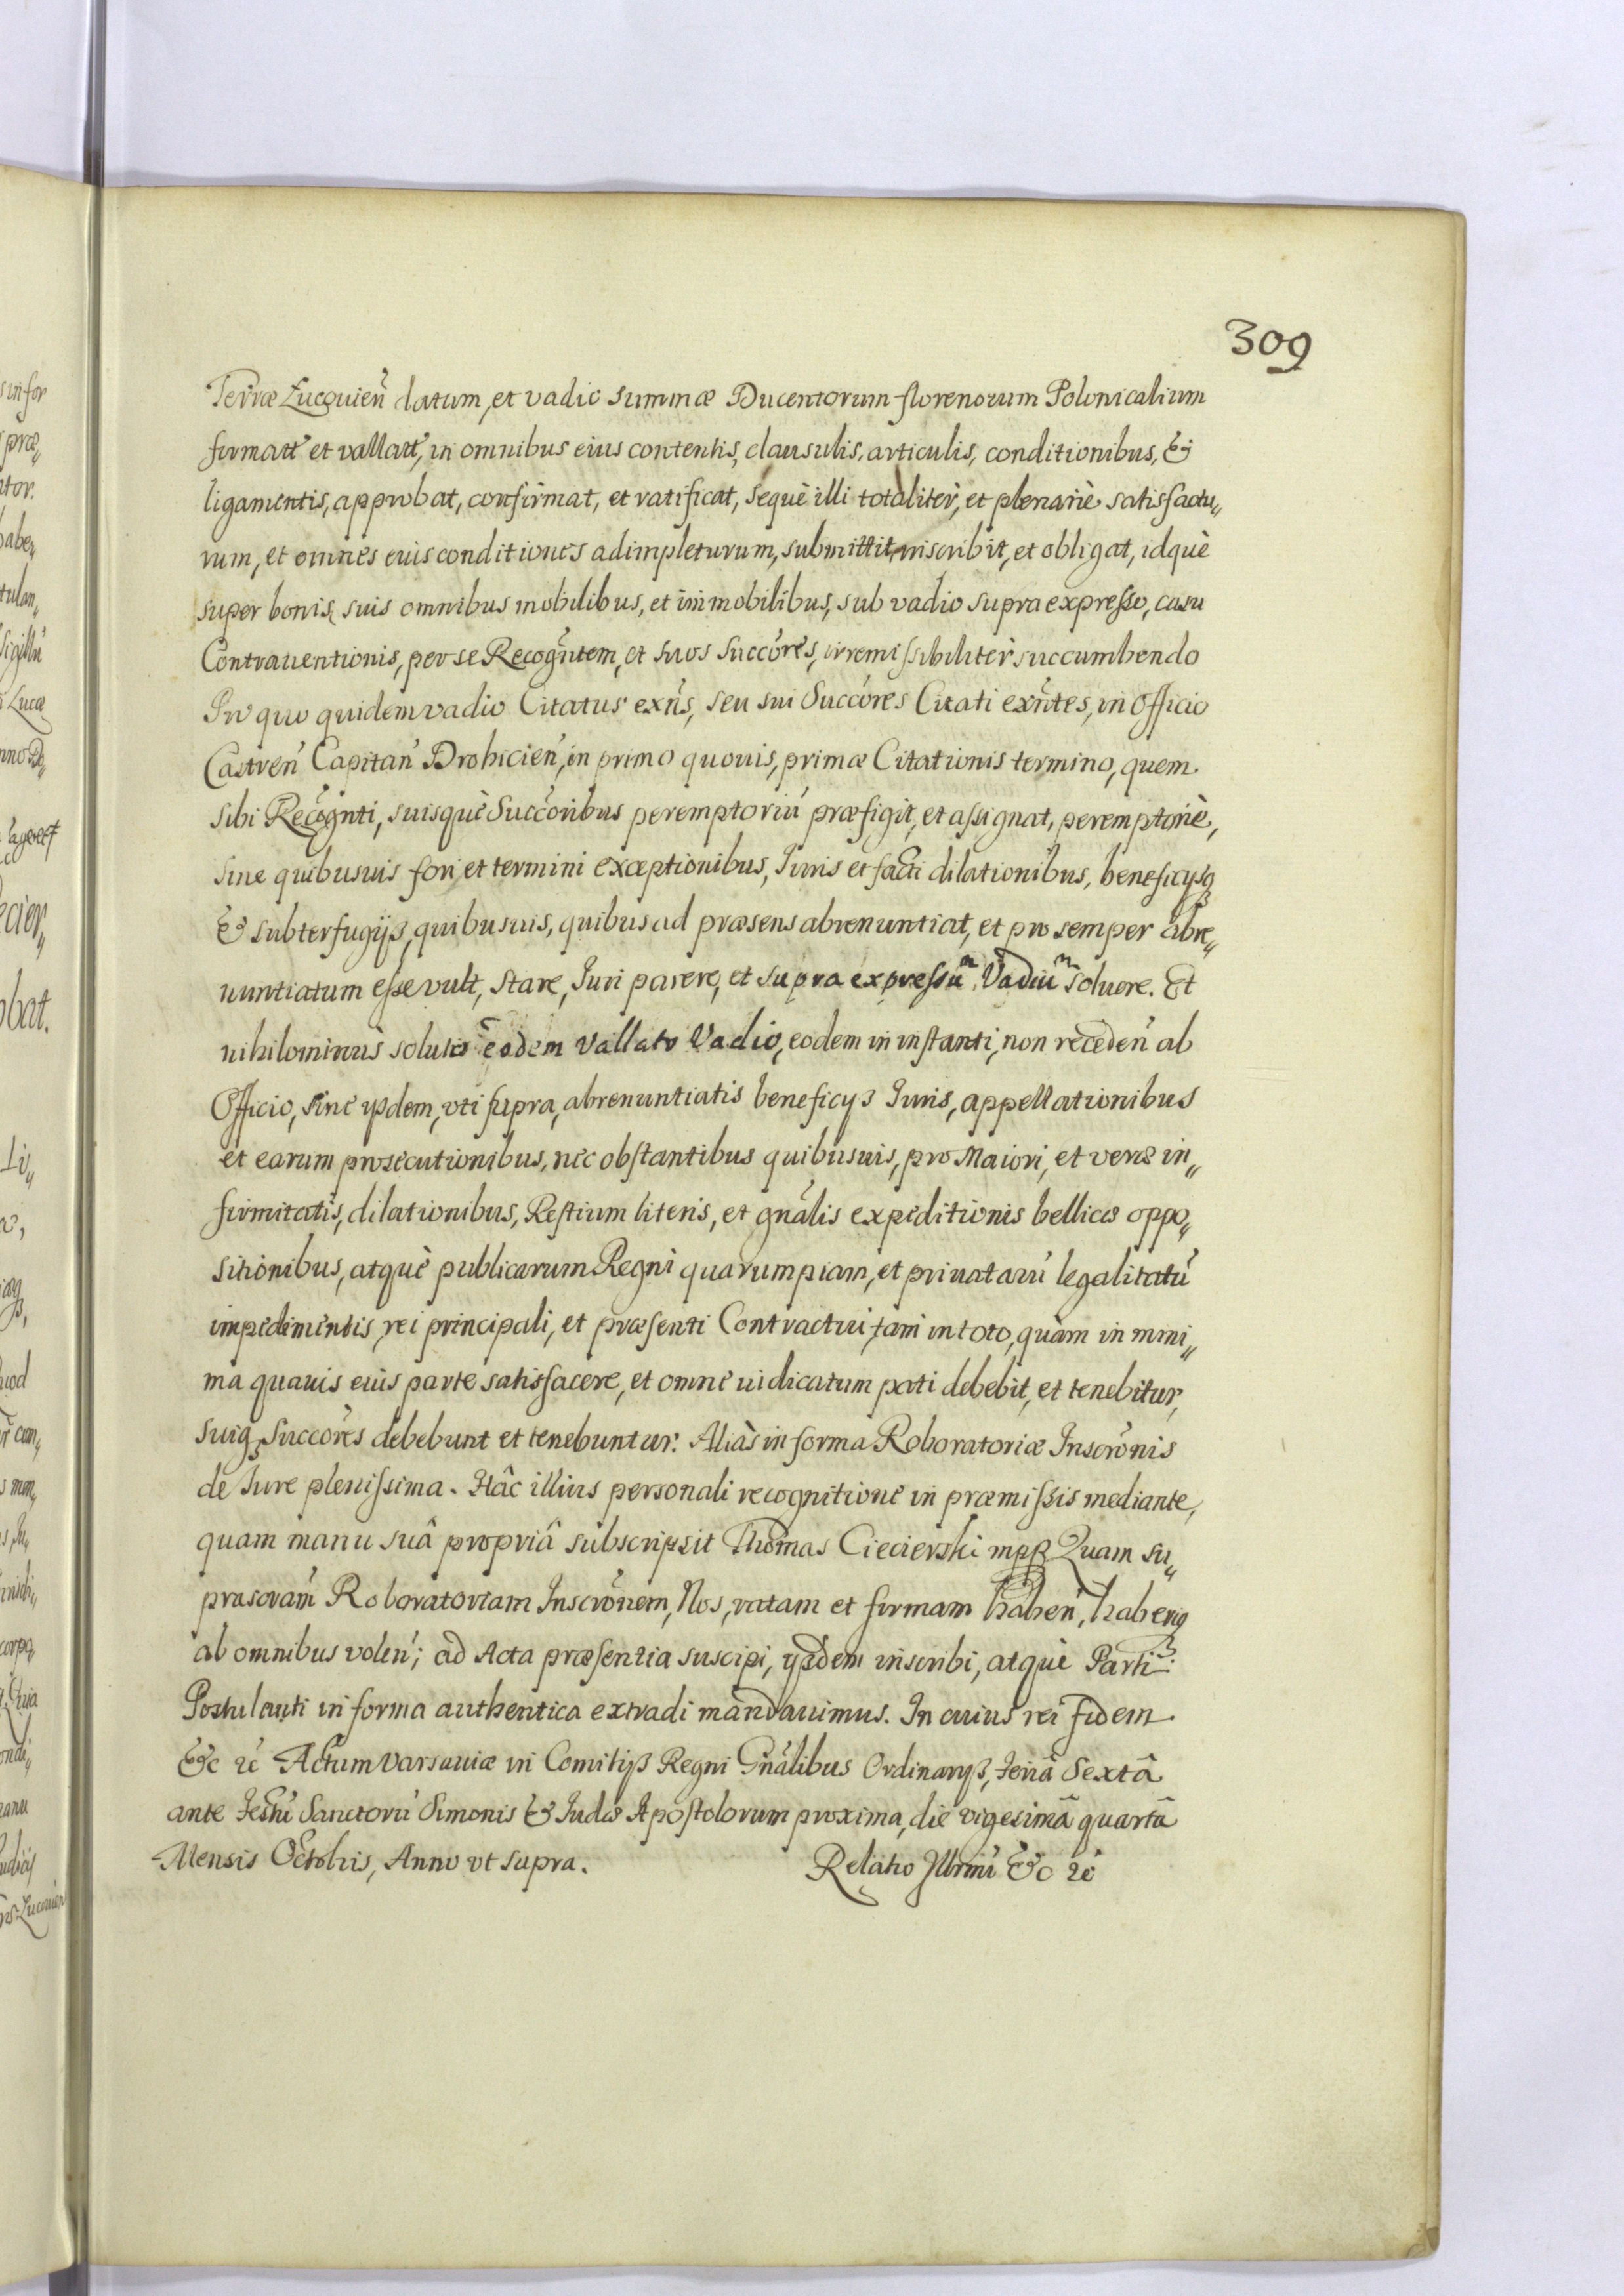 309
Terræ Łucouien̄ datum, et vadio summæ Ducentorum florenorum Polonicalium
firmatt et vallatt, in omnibus eius contentis, clausulis, articulis, conditionibus, &
ligamentis, approbat, confirmat, et ratificat, sequè illi totaliter, et plenariè satisfactu„
rum, et omnes eius conditiones adimpleturum, submittit, inscribit, et obligat, idquè
super bonis suis omnibus mobilibus, et immobilibus, sub vadio supra expresso, casu
Contrauentionis, per se Recogñtem, et suos Succōres, irremissibiliter succumbendo
In quo quidem vadio Citatus exn̄s, seu sui Succōres Citati exn̄tes, in Officio
Castren̄ Capitan̄ Drohicien̄, in primo quouis, primæ Citationis termino, quem
sibi Recogn̄ti, suisquè Succōribus peremptoriū præfigit, et assignat, peremptoriè,
sine quibusuis fori et termini exceptionibus, Iuris et facti dilationibus, beneficijsq
& subterfugijs, quibusuis, quibus ad præsens abrenuntiat, et pro semper abre„
nuntiatum esse vult, stare, Iuri parere, et supra expressum Vadium soluere. Et
nihilominus soluto eodem vallato Vadio, eodem in instanti, non receden̄ ab
Officio, sine ijsdem, vti supra, abrenuntiatis beneficijs Iuris, appellationibus
et earum prosecutionibus, nec obstantibus quibusuis, pro Maiori, et veræ in„
firmitatis, dilationibus, Restium literis, et gn̄alis expeditionis bellicæ oppo„
sitionibus, atquè publicarum Regni quarumpiam, et priuatarū legalitatū
impedimentis, rei principali, et præsenti Contractui, tam in toto, quàm in mini„
ma quauis eius parte satisfacere, et omne iudicatum pati debebit, et tenebitur,
suiq Succōres debebunt et tenebuntur. Aliàs in forma Roboratoriæ Inscrōnis
de Iure plenissima. Hâc illius personali recognitione in præmissis mediante,
quam manu suâ propriâ subscripsit Thomas Ciecierski mpp Quam su„
prascrām Roboratoriam Inscrōnem, Nos, ratam et firmam haben̄, haberiq
ab omnibus volen̄; ad Acta præsentia suscipi, ijsdem inscribi, atquè Parti
Postulanti in forma authentica extradi mandauimus. In cuius rei fidem
&c ꝛc Actum Varsauiæ in Comitijs Regni Gn̄alibus Ordinarijs, feriâ Sextâ
ante Festū Sanctorū Simonis & Iudæ Apostolorum proxima, die vigesimâ quartâ
Mensis Octobris, Anno vt supra. Relatio Illrmi &c ꝛc